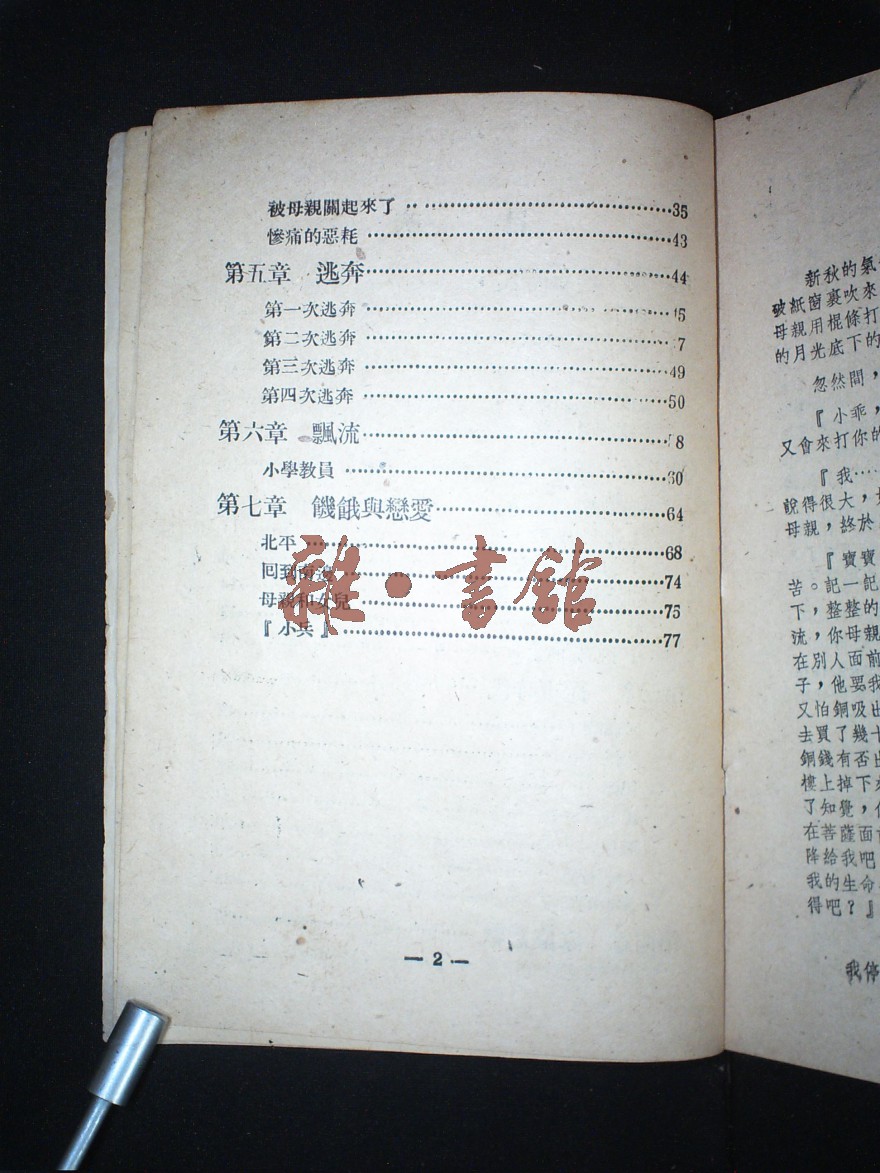 被母親關起來了 ………………………………35
慘痛的惡耗 ………………………………43
第五章 逃奔………………………………44
第一次逃奔 ………………………………5
第二次逃奔 ………………………………7
第三次逃奔 ………………………………49
第四次逃奔 ………………………………50
第六章 飄流………………………………8
小學教員 ………………………………60
第七章 饑餓與戀愛………………………………64
北平 ………………………………68
回到 ………………………………74
母親和女兒 ………………………………75
『小兵』 ………………………………77
雜·書館
— 2 —
新秋的氣
破紙窗裏吹來
母親用棍條打
的月光底下的
忽然間，
『小乖，
又會來打你的
『我……
說得很大，
母親，終於
『寶寶
苦。記一記
下，整整的
流，你母親
在別人面前
子，他要我
又怕銅吸出
去買了幾十
銅錢有否出
樓上掉下來
了知覺，
在菩薩面前
降給我吧
我的生命
得吧？』
我停